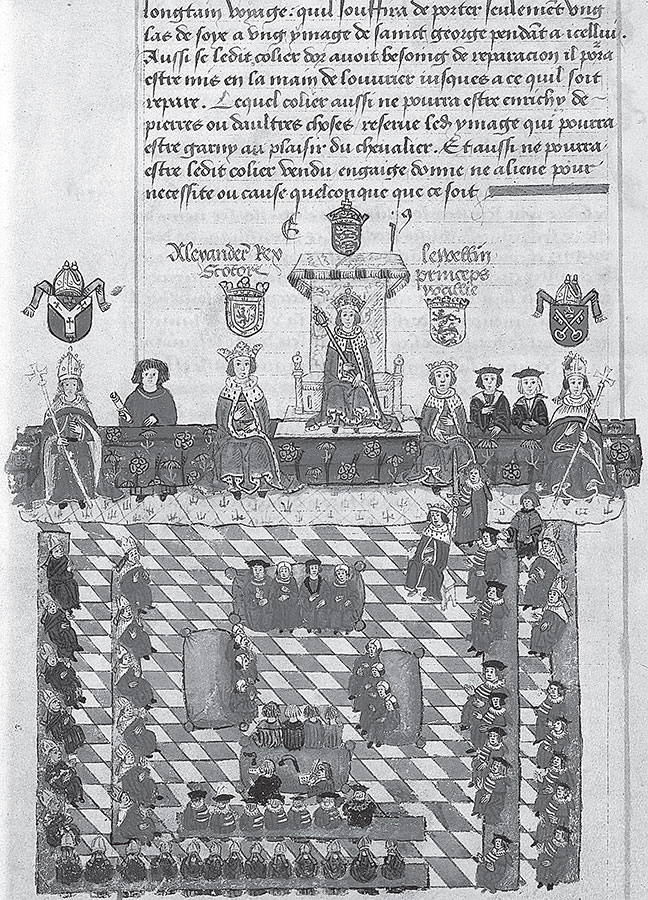 longtain voyage. quil souffira de porter seulement ung
las de soye a ung ymage de sainct george pendant a icellui.
Aussi se ledit colier dor avoit besoing de reparacion il porra
estre mis en la main de louurier iusques a ce quil soit
repare. Lequel colier aussi ne pourra estre enrichy de
pierres ou daultres choses reserve led ymage qui pourra
estre garny au plaisir du chevalier. Et aussi ne pourra
estre ledit colier vendu engaige donne ne aliene pour
necessite ou cause quelconque que ce soit
E
Alexander Rex
Scotore
lewellin
princeps